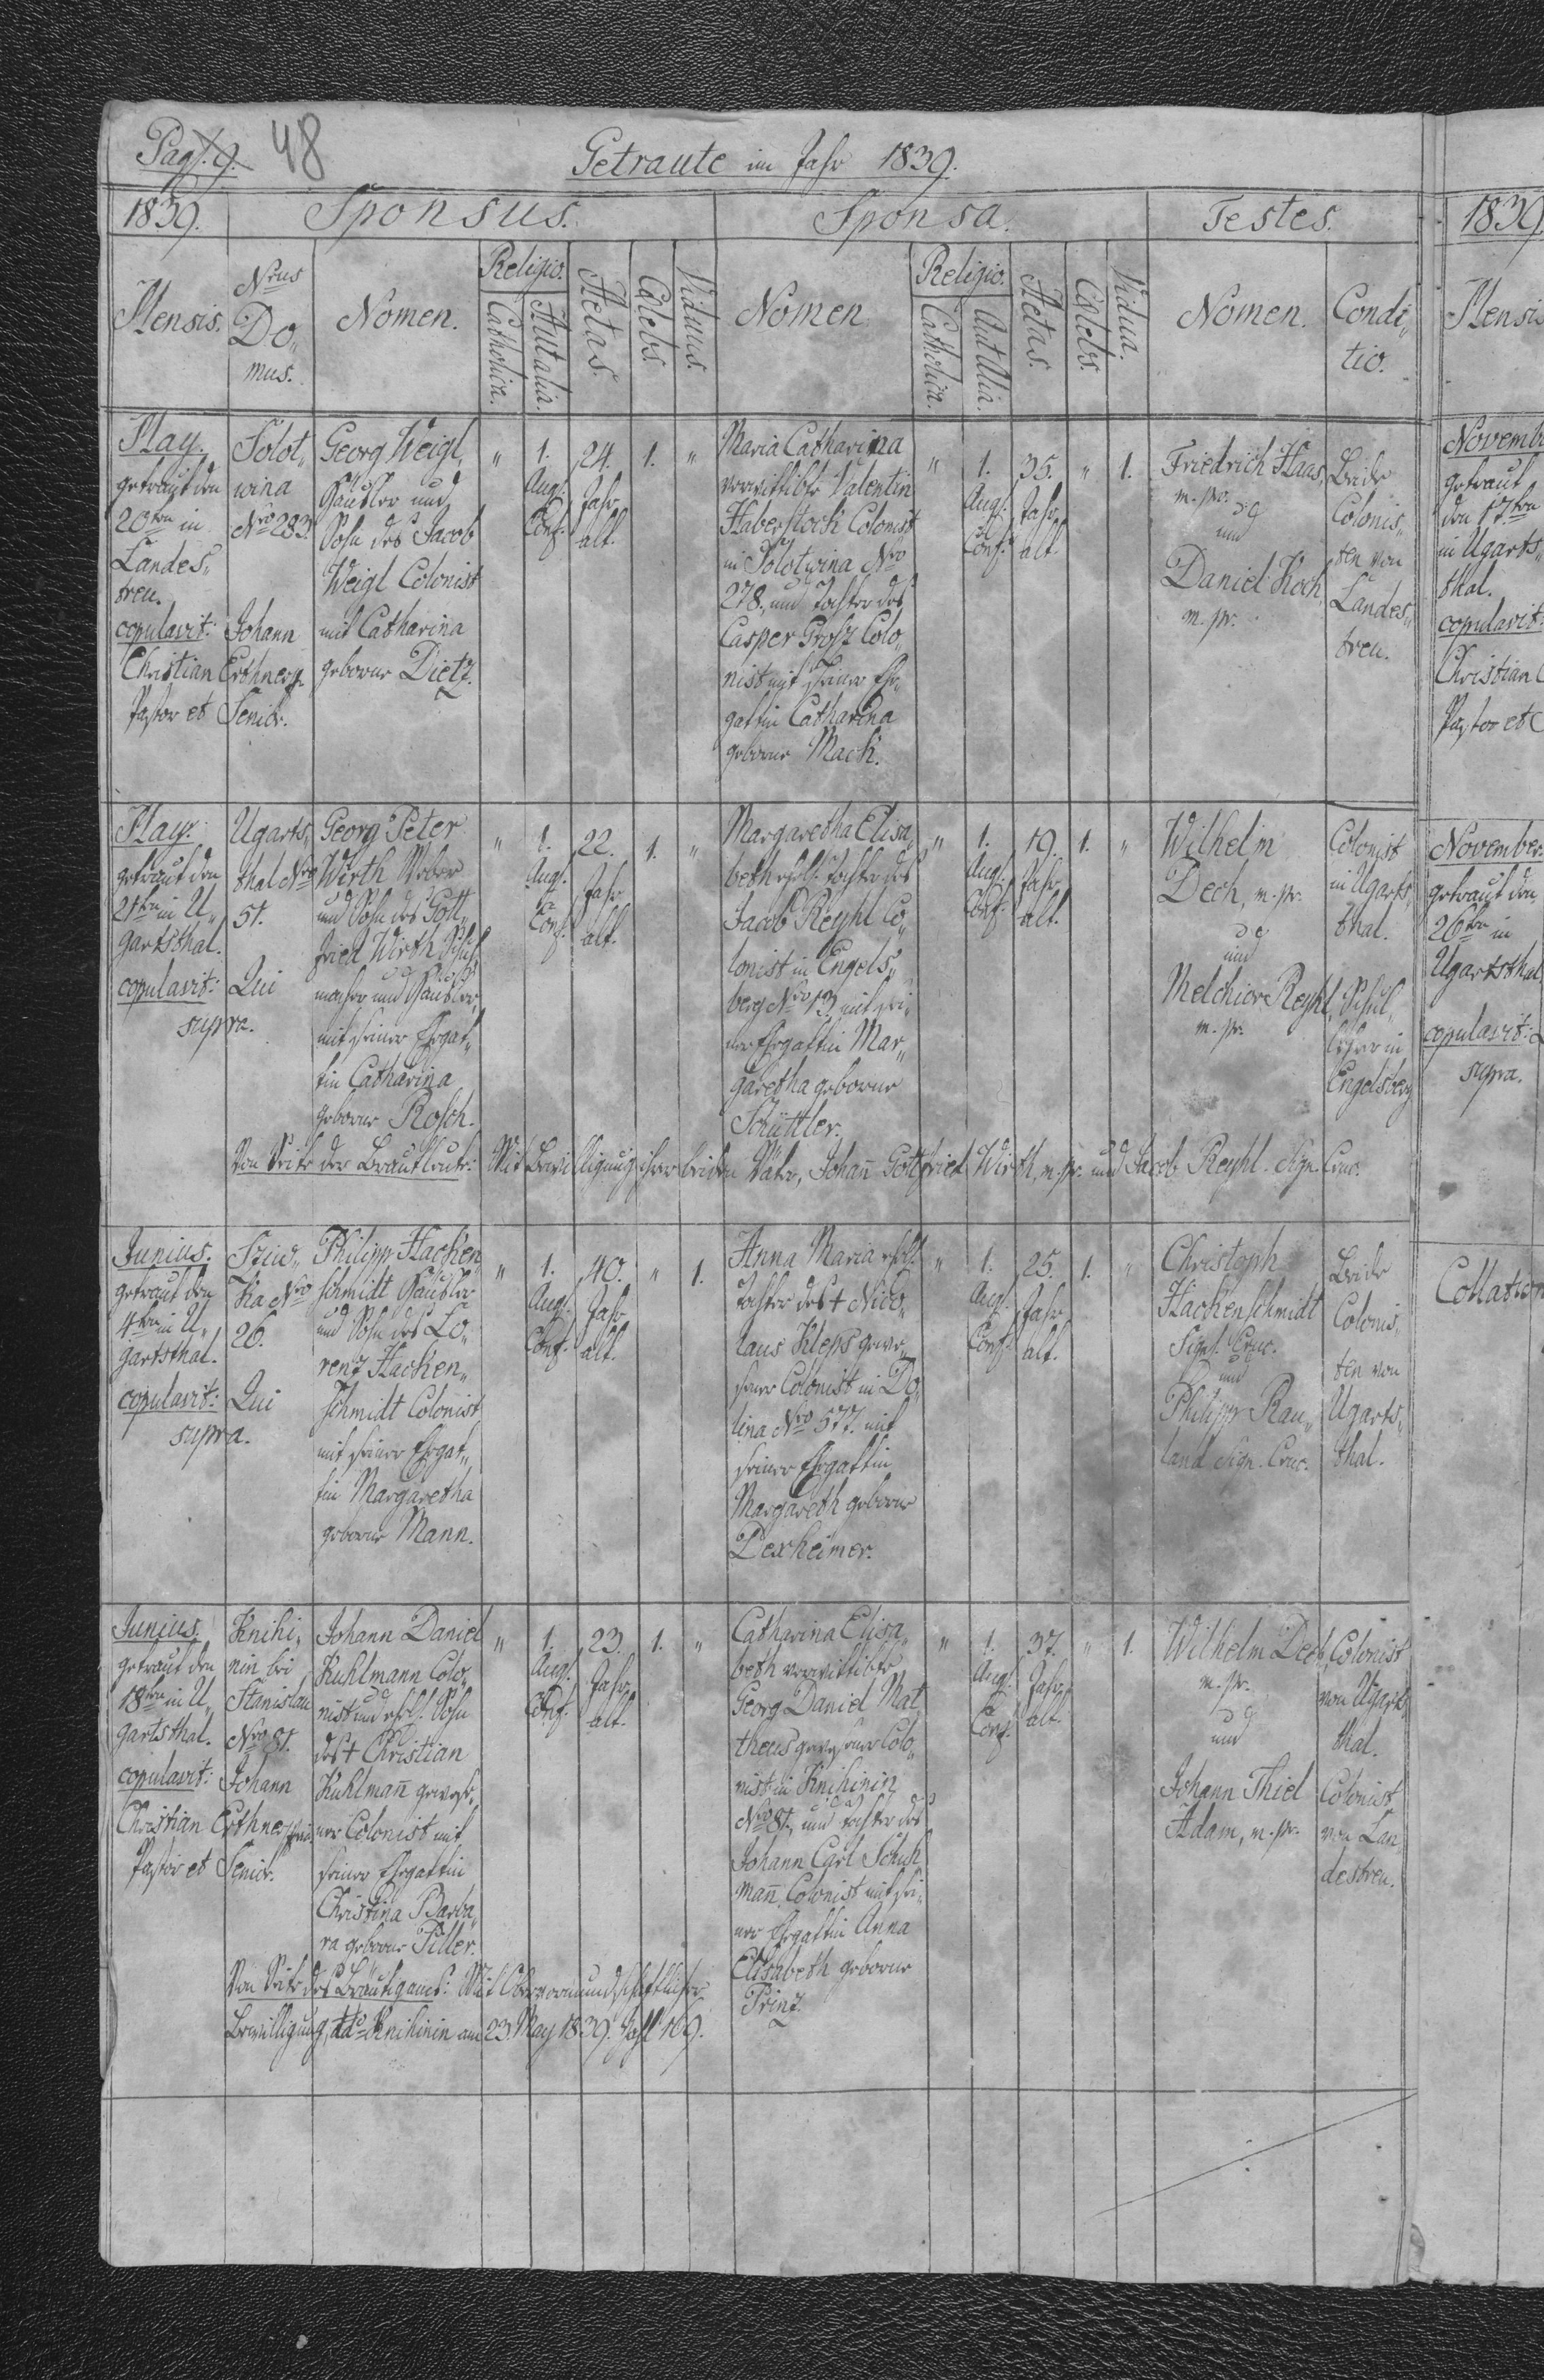 Pag. 9. 48
Getraute im Jahr 1839.
1839. Sponsus. Sponsa. Testes.
Mensis. Nrus Do„ mus. Nomen. Religio. Catholica. Aut alia. Aetas. Calebs. Viduus. Nomen. Religio. Catholica. Aut Allia. Aetas. Calebs. Vidua. Nomen. Condi„ tio.
May.
getraut den
20ten in
Landes„
treu.
copulavit: Johann
Christian Erthner
Pastor et Senior.
Solot„
wina
Nro 283.
Georg Weigl,
Häusler und
Sohn des Jacob
Weigl Colonist
mit Catharina
geborne Dietz.
„ 1. Augs. Conf. 24. Jahr alt. 1. „
Maria Catharina
verwittibte Valentin
Haberstock Colonist
in Solotwina Nro
278. und Tochter des
Casper Grosz Colo„
nist mit seiner Ehe„
gattin Catharina
geborne Mack.
„ 1. Augs. Conf. 35. Jahr alt. „ 1.
Friedrich Haas,
m. pr.
und
Daniel Koch,
m. pr.
Beide
Colonis„
ten von
Landes„
treu.
May.
getraut den
21ten in U„
gartsthal.
copulavit: Qui
supra.
Ugarts„
thal Nro
51.
Georg Peter
Wirth Weber
und Sohn des Gott„
fried Wirth Schuh„
macher und Häusler,
mit seiner Ehegat„
tin Catharina
geborne Rosch.
„ 1. Augs. Conf. 22. Jahr alt. 1. „
Margaretha Elisa„
beth ehel. Tochter des
Jacob Reyhl Co„
lonist in Engels„
berg Nro 13. mit sei„
ner Ehegattin Mar„
garetha geborne
Schüttler.
„ 1. Augs. Conf. 19. Jahr alt. 1. „
Wilhelm
Dech, m. pr.
und
Melchior Reyhl,
m. pr.
Colonist
in Ugarts„
thal.
Schul„
lehrer in
Engelsberg
Von Seite der Brautleute: Mit Bewilligung ihrer beiden Väter, Johañ Gottfried Wirth, m. pr. und Jacob Reyhl. Sign. Cruc.
Junius.
getraut den
4ten in U„
gartsthal.
copulavit: Qui
supra.
Nro
26.
Philipp Hacken„
schmidt Häusler
und Sohn des Lo„
renz Hacken„
schmidt Colonist
mit seiner Ehegat„
tin Margaretha
geborne Mann.
„ 1. Augs. Conf. 40. Jahr alt. „ 1.
Anna Maria ehel.
Tochter des † Nico„
laus Kleps gewe„
sener Colonist in Do„
lina Nro 577. mit
seiner Ehegattin
Margareth geborne
Dexheimer.
„ 1. Augs. Conf. 25. Jahr alt. 1. „
Christoph
Hackenschmidt
Sign. Cruc.
und
Philipp Rau„
land Sign. Cruc.
Beide
Colonis„
ten von
Ugarts„
thal.
Junius.
getraut den
18ten in U„
gartsthal.
copulavit: Johann
Christian Erthner
Pastor et Senior.
Knihi„
nin bei
Stanislau
Nro 81.
Johann Daniel
Kuhlmann Colo„
nist und ehel. Sohn
des † Christian
Kuhlmañ gewese„
ner Colonist mit
seiner Ehegattin
Christina Barba„
ra geborne Filler.
„ 1. Augs. Conf. 23. Jahr alt. 1. „
Catharina Elisa„
beth verwittibte
Georg Daniel Mat„
theus gewesener Colo„
nist in Knihinin
Nro 81., und Tochter des
Johann Carl Schuh„
mañ Colonist mit sei„
ner Ehegattin Anna
Elisabeth geborne
Prinz.
„ 1. Augs. Conf. 37. Jahr alt. „ 1.
Wilhelm Dech,
m. pr.
und
Johann Thiel
Adam, m. pr.
Colonist
von Ugarts„
thal.
Colonist
von Lan„
destreu.
Von Seite des Bräutigams: Mit Obervormundschaftlicher
Bewilligung, ddo Knihinin am 23. May 1839. Zahl 169.
1839
Mensis
Novemb
getraut
den 17ten
in Ugarts„
thal.
copulavit:
Christian
Pastor et
November.
getraut den
26ten in
Ugartsthal
copulavit:
supra.
Collation